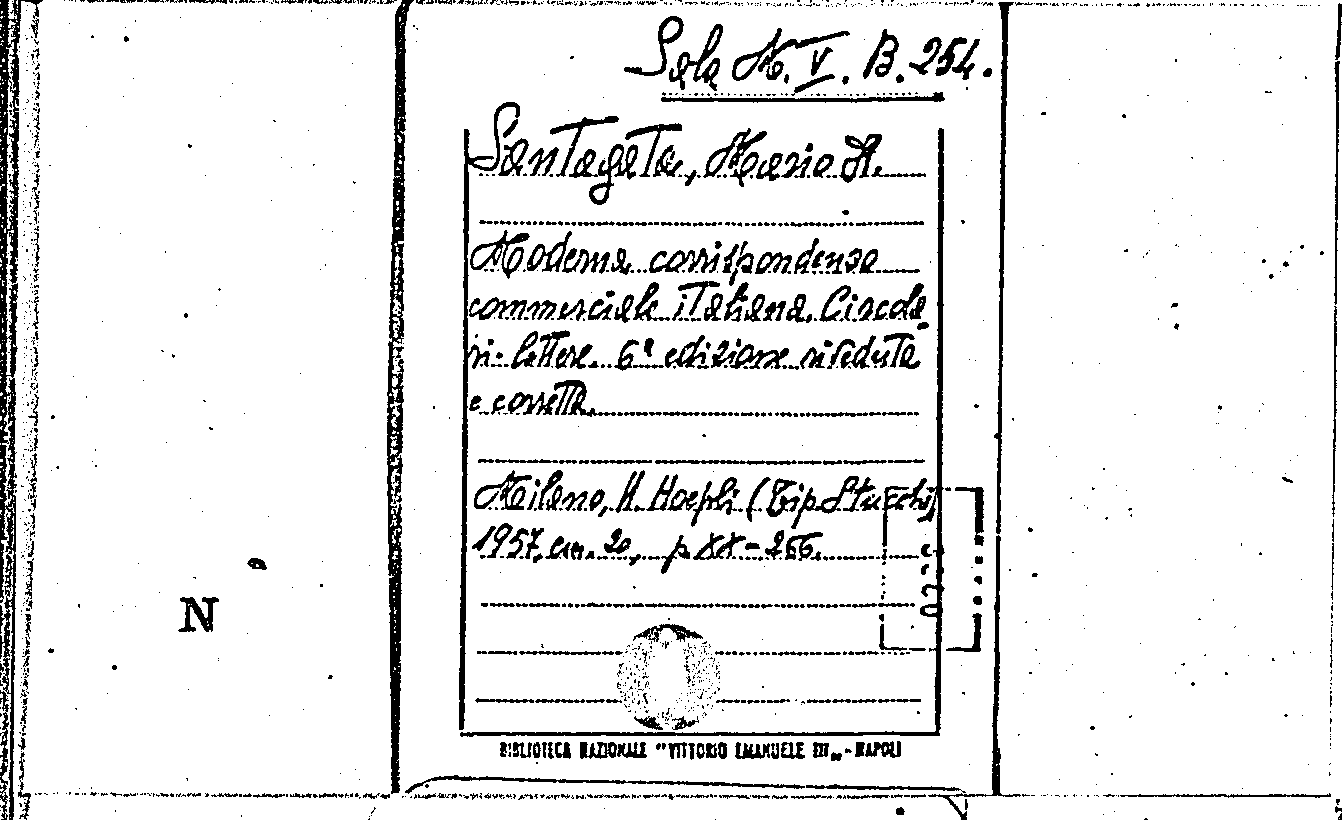 Sala M. V. B. 254.
Santagata, Mario A.
Moderna corrispondenza
commerciale italiana. Circola-
ri-lettere. 6ª edizione riveduta
e corretta.
Milano, U. Hoepli (Tip. Stucchi)
1957, cm. 20, p. XX-266.
N
BIBLIOTECA NAZIONALE "VITTORIO EMANUELE III„ - NAPOLI